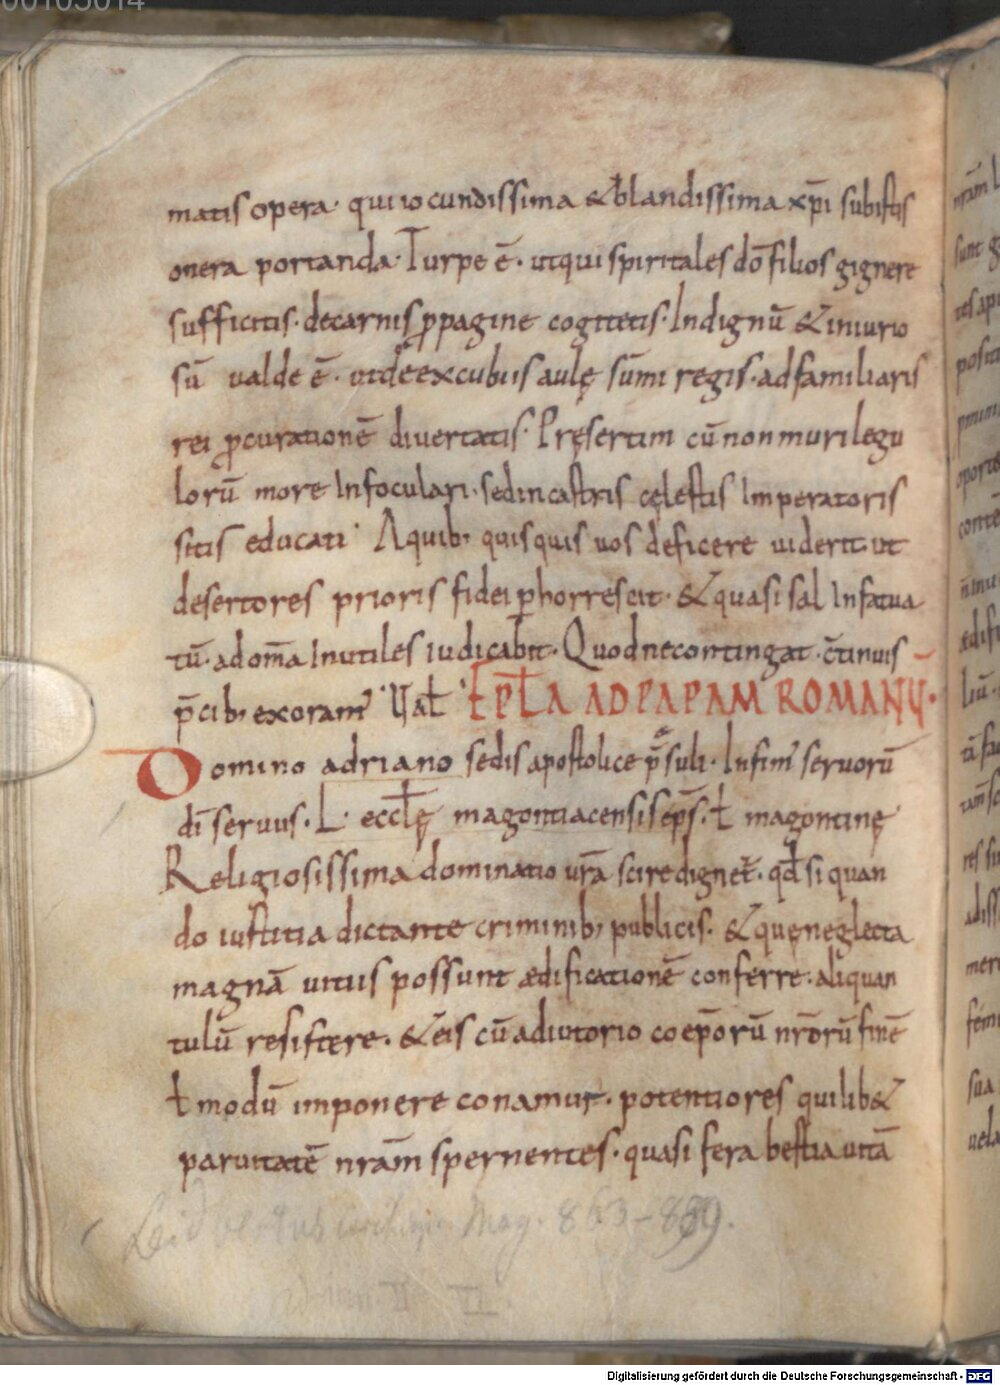 00105014
matis opera · qui iocundissima & blandissima xp̄i subistis
onera portanda · Turpe ē · ut qui spiritales dō filios gignere
sufficitis · de carnis ꝓpagine cogitetis · Indignū & iniurio
sū ualde ē · ut de excubiis aulę sūmi regis · ad familiaris
rei ꝓcurationē diuertatis · Pręsertim cū non murilegu
lorū more In foculari · sed in castris cęlestis Imperatoris
sitis educati · A quib; quisquis uos deficere uiderit · ut
desertores prioris fidei ꝑhorrescit · & quasi sal Infatua
tū · ad om̄a Inutiles iudicabit · Quod ne contingat · c̄tinuis
p̄cib; exoram' Ual̄ · EPLA AD PAPAM ROMANŪ ·
Domino adriano sedis apostolice p̄suli · Infim' seruorū
dī seruus · L · eccłę magontiacensis ep̄s · ł magontinę
Religiosissima dominatio ur̄a scire dignet̄ · qd̄ si quan
do iustitia dictante criminib; publicis · & quę neglecta
magnā uitiis possunt ædificationē conferre · aliquan
tulū resistere · & eis cū adiutorio coep̄orū nr̄orū finē
ł modū imponere conamur · potentiores quilib&
paruitatē nrām spernentes · quasi fera bestia uitā
Mag. 863-889.
II VI.
Digitalisierung gefördert durch die Deutsche Forschungsgemeinschaft - DFG